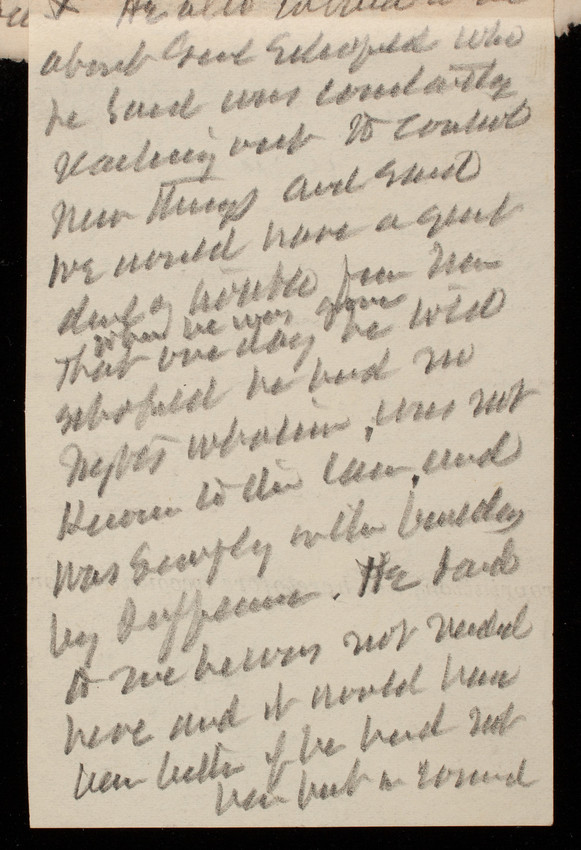 He also talked to me
about Genl Schofield who
he said was constantly
reaching out to control
new things and said
we would have a great
deal of trouble from him
when he was gone
That one day he told
Schofield he had no
rights whatever, was not
known to the law, and
was simply in the building
by sufferance. He said
to me he was not needed
here and it would have
been better if he had not
been put in